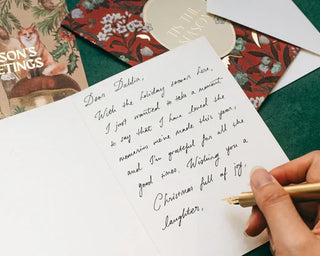 SON'S
TINGS
TIS THE
SEASON
Dear Dahlia,
With the holiday season here,
I just wanted to take a moment
to say that I have loved the
memories we've made this year,
and I'm grateful for all the
good times. Wishing you a
Christmas full of joy,
laughter,